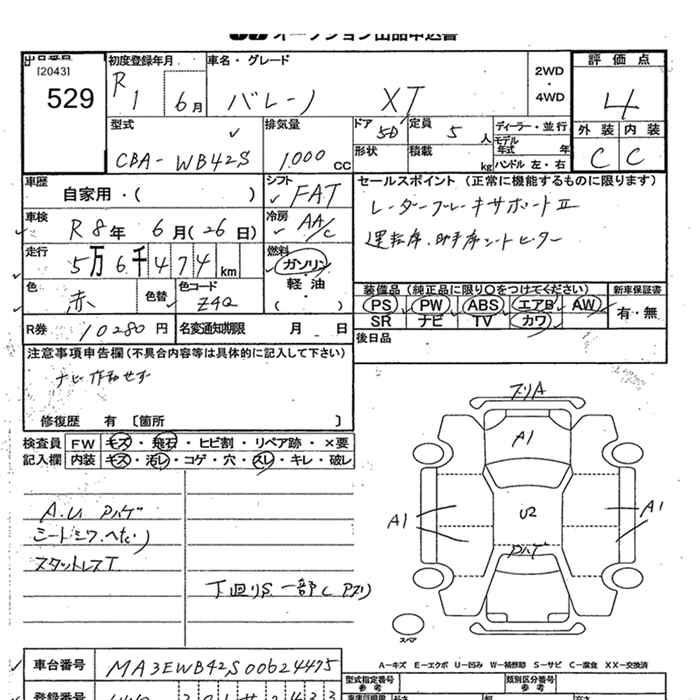 オークション出品申込書
出品番号
[2043]
529
初度登録年月
R1 6月
車名・グレード
バレーノ XT
2WD
・
4WD
評価点
4
外装 内装
C C
型式
CBA-WB42S
排気量
1,000 cc
ドア 5D
定員 5 人
形状
積載 kg
ディーラー・並行
モデル年式 年
ハンドル 左・右
車歴
自家用・( )
シフト
FAT
セールスポイント (正常に機能するものに限ります)
レーダーブレーキサポートⅡ
運転席、助手席シートヒーター
車検
R8年 6月(26日)
冷房
AA/C
走行
5万6千474km
燃料
ガソリン
軽油
・
( )
色
赤
色替
色コード
Z4Q
装備品 (純正品に限り○をつけてください)
PS PW ABS エアB AW
SR ナビ TV カワ
新車保証書
有・無
R券 10280円
名変通知期限 月 日
後日品
注意事項申告欄(不具合内容等は具体的に記入して下さい)
ナビ作動せず
修復歴 有 〔箇所 〕
検査員記入欄
FW キズ・飛石・ヒビ割・リペア跡・×要
内装 キズ・汚レ・コゲ・穴・スレ・キレ・破レ
A.U Pハゲ
シートシワ、へたり
スタットレスT
下回りS 一部C Pズリ
ズリA
A1
A1
U2
A1
Pハゲ
スペア
A-キズ E-エクボ U-凹み W-補修跡 S-サビ C-腐食 XX-交換済
車台番号
MA3EWB42S00624475
型式指定番号
参考
類別区分番号
参考
登録番号